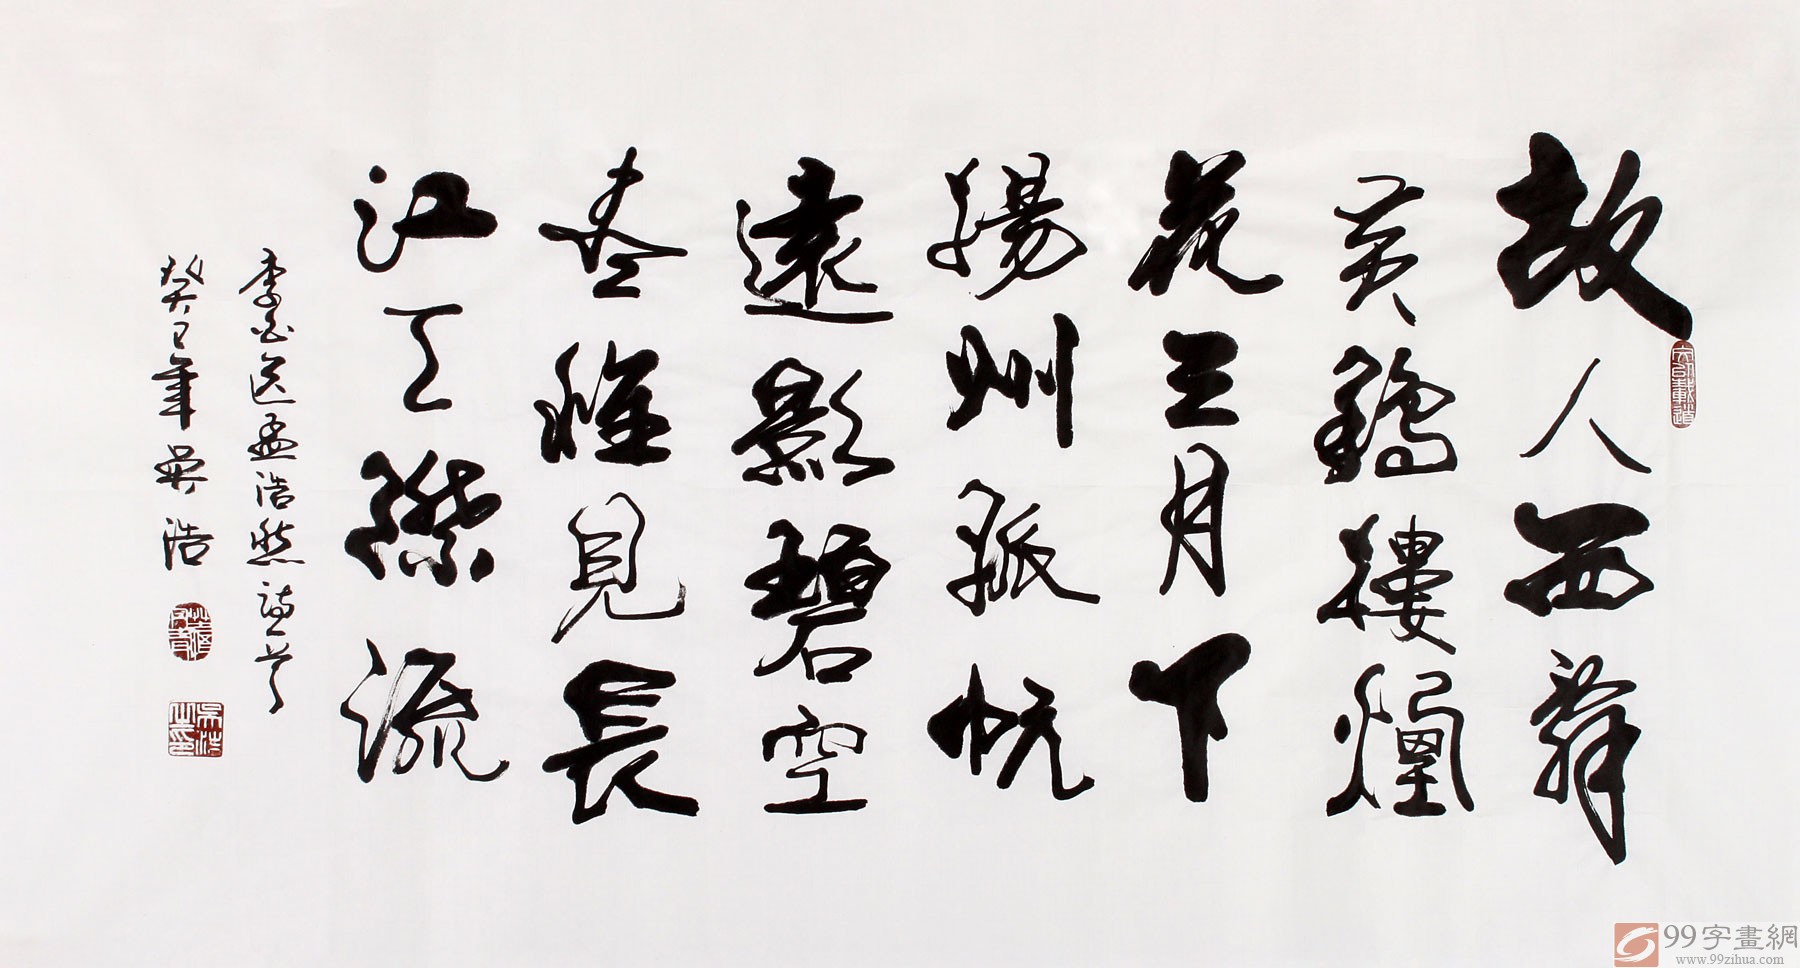 故人西辭
黃鶴樓烟
花三月下
揚州孤帆
遠影碧空
盡惟見長
江天際流
李白送孟浩然詩一首
癸巳年吳浩
文以載道
吳浩之印
99字畫網
www.99zihua.com